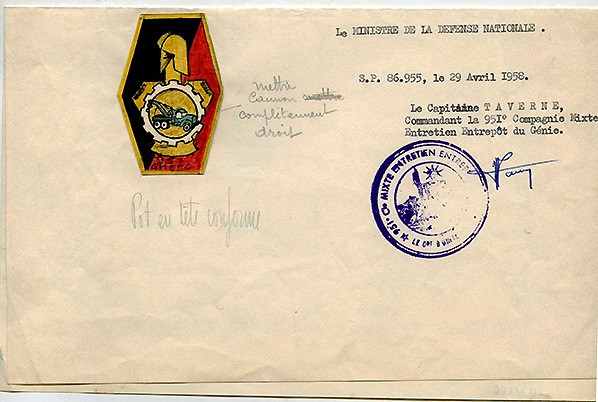 Le MINISTRE DE LA DEFENSE NATIONALE .
S.P. 86.955, le 29 Avril 1958.
Le Capitaine TAVERNE,
Commandant la 951° Compagnie Mixte
Entretien Entrepôt du Génie.
mettre
camion
complètement
droit
951° Cie MIXTE ENTRETIEN ENTREP
LE CDT D'UNITE
Pot en tête conforme